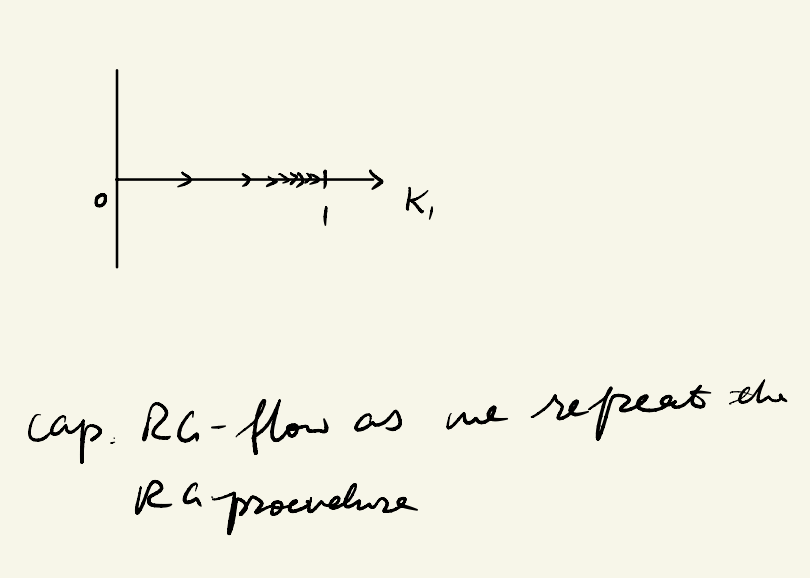 0
1
K₁
cap. RG-flow as we repeat the
RG procedure